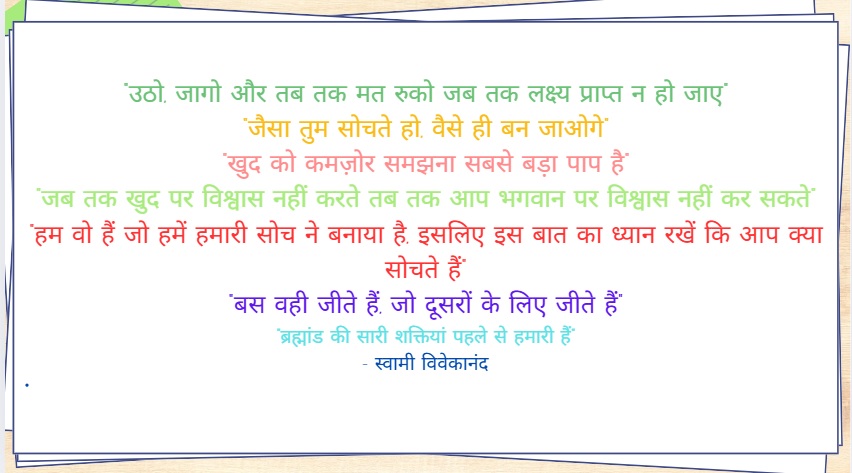 "उठो, जागो और तब तक मत रुको जब तक लक्ष्य प्राप्त न हो जाए"
"जैसा तुम सोचते हो, वैसे ही बन जाओगे"
"खुद को कमज़ोर समझना सबसे बड़ा पाप है"
"जब तक खुद पर विश्वास नहीं करते तब तक आप भगवान पर विश्वास नहीं कर सकते"
"हम वो हैं जो हमें हमारी सोच ने बनाया है, इसलिए इस बात का ध्यान रखें कि आप क्या
सोचते हैं"
"बस वही जीते हैं, जो दूसरों के लिए जीते हैं"
"ब्रह्मांड की सारी शक्तियां पहले से हमारी हैं"
- स्वामी विवेकानंद